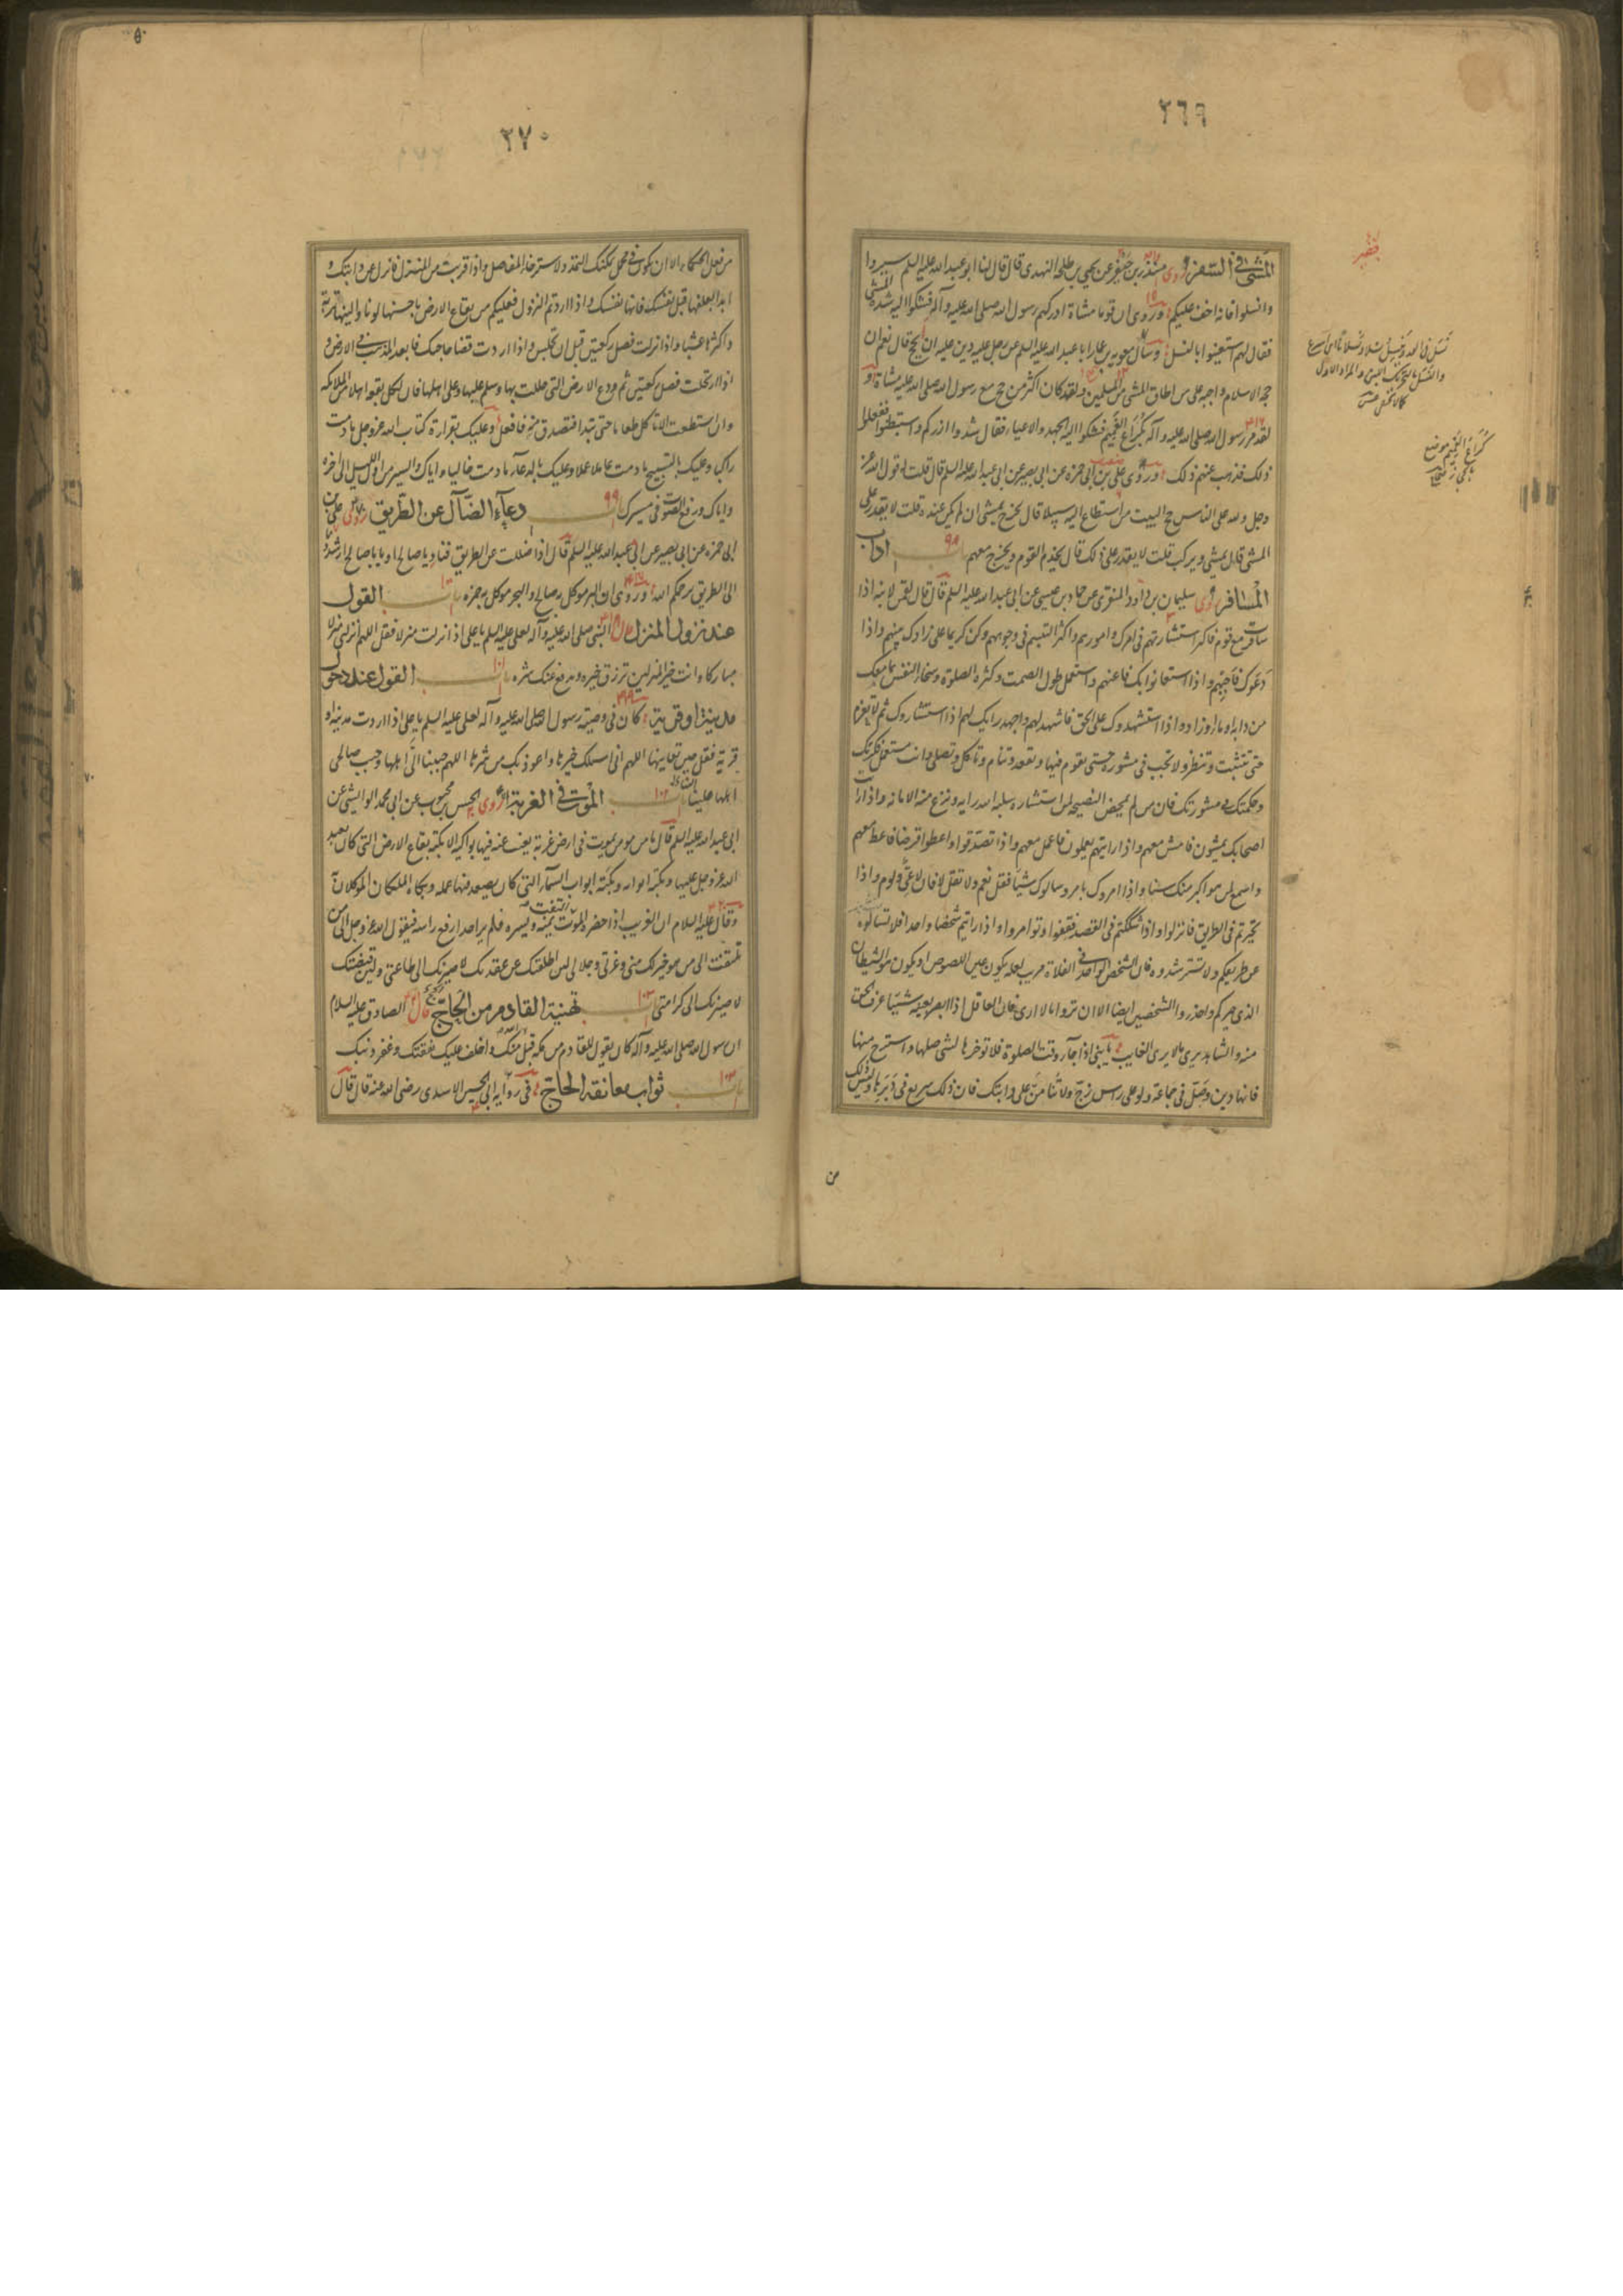 ٢٦٩
المشي في السفر روى منذر بن جيفر عن يحيى بن طلحة النهدي قال قال لنا ابو عبدالله عليه السلم سيروا
وانسلوا فانه اخف عليكم وروى ان قوما مشاة ادركهم رسول الله صلى الله عليه وآله فشكوا اليه شدة المشي
فقال لهم استعينوا بالنسل وسأل معوية بن عمار ابا عبد الله عليه السلم عن رجل عليه دين عليه ان يحج قال نعم ان
حجة الاسلام واجبة على من اطاق المشي من المسلمين ولقد كان اكثر من حج مع رسول الله صلى الله عليه مشاة و
لقد مر رسول الله صلى الله عليه وآله بكراع الغميم فشكوا اليه الجهد والاعياء فقال شدوا ازركم واستبطنوا ففعلوا
ذلك فذهب عنهم ذلك وروى علي بن ابي حمزة عن ابي بصير عن ابي عبد الله عليه السلم قال قلت له قول الله عز
وجل ولله على الناس حج البيت من استطاع اليه سبيلا قال يخرج يمشي ان لم يكن عنده قلت لا يقدر على
المشي قال يمشي ويركب قلت لا يقدر على ذلك قال يخدم القوم ويخرج معهم باب ٩٨ اداب
المسافر روى سليمان بن داود المنقري عن حماد بن عيسى عن ابي عبد الله عليه السلم قال قال لقمن لابنه اذا
سافرت مع قوم فاكثر استشارتهم في امرك وامورهم واكثر التبسم في وجوههم وكن كريما على زادك بينهم واذا
دعوك فاجبهم واذا استعانوا بك فاعنهم واستعمل طول الصمت وكثرة الصلوة وسخاء النفس بما معك
من دابة او ماء او زاد واذا استشهدوك على الحق فاشهد لهم واجهد رايك لهم اذا استشاروك ثم لا تعزم
حتى تتثبت وتنظر ولا تجب في مشورة حتى تقوم فيها وتقعد وتنام وتاكل وتصلي وانت مستعمل فكرتك
وحكمتك في مشورتك فان من لم يمحض النصيحة لمن استشاره سلبه الله رايه ونزع منه الامانة واذا رايت
اصحابك يمشون فامش معهم واذا رايتهم يعملون فاعمل معهم واذا تصدقوا واعطوا قرضا فاعط معهم
واسمع لمن هو اكبر منك سنا واذا امروك بامر وسالوك شيئا فقل نعم ولا تقل لا فان لا عي ولوم واذا
تحيرتم في الطريق فانزلوا واذا شككتم في القصد فقفوا وتوامروا واذا رايتم شخصا واحدا فلا تسالوه
عن طريقكم ولا تسترشدوه فان الشخص الواحد في الفلاة مريب لعله يكون عين اللصوص او يكون هو الشيطان
الذي حيركم واحذروا الشخصين ايضا الا ان تروا ما لا ارى فان العاقل اذا ابصر بعينه شيئا عرف الحق
منه والشاهد يرى ما لا يرى الغايب يا بني اذا جاء وقت الصلوة فلا توخرها لشيء صلها واسترح منها
فانها دين وصل في جماعة ولو على راس زج ولا تنامن على دابتك فان ذلك سريع في دبرها وليس ذلك
كراع الغميم موضع
من
٢٧٠
من فعل الحكماء الا ان تكون في محمل يمكنك التمدد لاسترخاء المفاصل واذا قربت من المنزل فانزل عن دابتك و
ابدا بعلفها قبل نفسك فانها نفسك واذا اردتم النزول فعليكم من بقاع الارض باحسنها لونا والينها تربة
واكثرها عشبا واذا نزلت فصل ركعتين قبل ان تجلس واذا اردت قضا حاجتك فابعد المذهب في الارض و
اذا ارتحلت فصل ركعتين ثم ودع الارض التي حللت بها وسلم عليها وعلى اهلها فان لكل بقعة اهلا من الملائكة
وان استطعت الا تاكل طعاما حتى تبدا فتصدق منه فافعل وعليك بقراءة كتاب الله عز وجل ما دمت
راكبا وعليك بالتسبيح ما دمت عاملا عملا وعليك بالدعاء ما دمت خاليا واياك والسير من اول الليل الى اخره
واياك ورفع الصوت في مسيرك باب ٩٩ دعاء الضال عن الطريق روى علي بن
ابي حمزة عن ابي بصير عن ابي عبد الله عليه السلم قال اذا ضللت عن الطريق فناد يا صالح او يا با صالح ارشدونا
الى الطريق يرحمكم الله وروى ان البر موكل به صالح والبحر موكل به حمزة باب ١٠٠ القول
عند نزول المنزل قال النبي صلى الله عليه وآله لعلي عليه السلم يا علي اذا نزلت منزلا فقل اللهم انزلني منزلا
مباركا وانت خير المنزلين ترزق خيره ويدفع عنك شره باب ١٠١ القول عند دخول
مدينة او قرية كان في وصية رسول الله صلى الله عليه وآله لعلي عليه السلم يا علي اذا اردت مدينة او
قرية فقل حين تعاينها اللهم اني اسئلك خيرها واعوذ بك من شرها اللهم حببنا الى اهلها وحبب صالحي
اهلها الينا باب ١٠٢ الموت في الغربة روى الحسن بن محبوب عن ابي محمد الوابشي عن
ابي عبد الله عليه السلم قال ما من مومن يموت في ارض غربة يغيب عنه فيها بواكيه الا بكته بقاع الارض التي كان يعبد
الله عز وجل عليها وبكته اثوابه وبكته ابواب السماء التي كان يصعد فيها عمله وبكاه الملكان الموكلان به
وقال عليه السلام ان الغريب اذا حضره الموت التفت يمنة ويسرة فلم ير احدا رفع راسه فيقول الله عز وجل الى من
تلتفت الى من هو خير لك مني وعزتي وجلالي لئن اطلقتك عن عقدتك لاصيرنك الى طاعتي ولئن قبضتك
لاصيرنك الى كرامتي باب ١٠٣ تهنية القادم من الحاج قال الصادق عليه السلام
ان رسول الله صلى الله عليه وآله كان يقول للقادم من مكة قبل الله منك واخلف عليك نفقتك وغفر ذنبك
باب ثواب معانقة الحاج في رواية ابي الحسين الاسدي رضي الله عنه قال قال